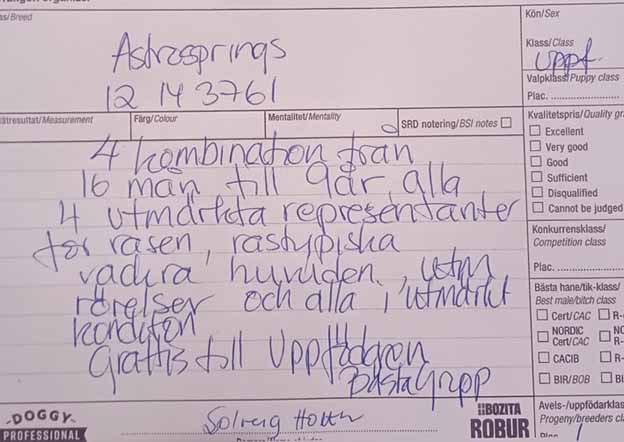 as/Breed
Astrosprings
12 14 3761
Kön/Sex
Klass/Class
Uppf.
Valpklass/Puppy class
Plac.
ätresultat/Measurement
Färg/Colour
Mentalitet/Mentality
SRD notering/BSI notes
Kvalitetspris/Quality gr
Excellent
Very good
Good
Sufficient
Disqualified
Cannot be judged
4 kombination från
16 mån till 9år, alla
4 utmärkta representanter
för rasen, rastypiska
vackra huvuden, utm
rörelser och alla i utmärkt
kondition
Grattis till Uppfödaren
Bästa Grupp
Konkurrensklass/
Competition class
Plac.
Bästa hane/tik-klass/
Best male/bitch class
Cert/CAC
R-
NORDIC
Cert/CAC
CACIB
R-
BIR/BOB
BI
DOGGY
PROFESSIONAL
Solveig
BOZITA
ROBUR
Avels-/uppfödarklas
Progeny/breeders cla
1